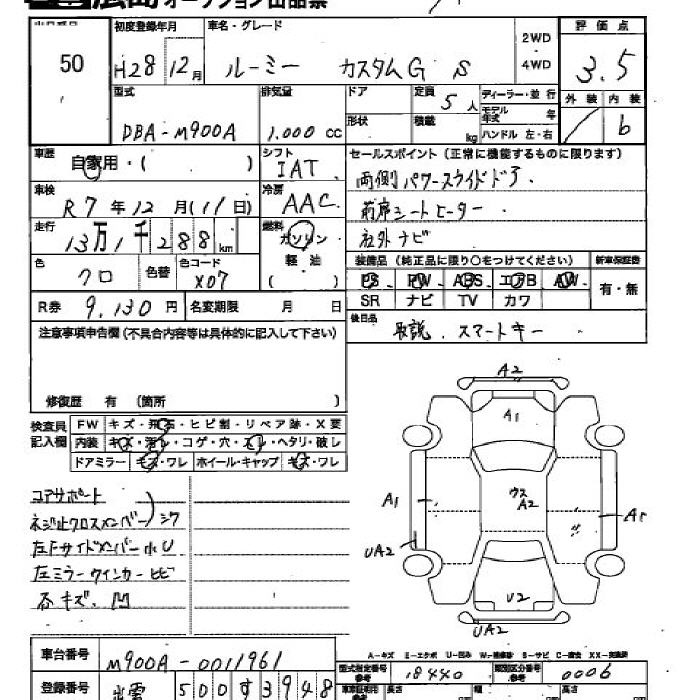 広島 オークション出品票
50
初度登録年月 H28 12月
車名・グレード ルーミー カスタムG S
2WD・4WD
評価点 3.5
型式 DBA-M900A
排気量 1.000 cc
ドア
形状
定員 5人
積載 kg
ディーラー・並行
モデル年式 年
ハンドル 左・右
外装 内装 b
車歴 自家用・( )
シフト IAT
セールスポイント (正常に機能するものに限ります)
両側パワースライドドア.
車検 R7年12月(11日)
冷房 AAC
前席シートヒーター.
走行 13万1千288km
燃料 ガソリン 軽油 ( )
社外ナビ
装備品 (純正品に限り○をつけてください) 新車保証書
色 クロ 色替 色コード X07
PS PW ABS エアB AW 有・無
SR ナビ TV カワ
R券 9.130円 名変期限 月 日
後日品 取説. スマートキー
注意事項申告欄(不具合内容等は具体的に記入して下さい)
修復歴 有 (箇所 )
検査員記入欄
FW キズ・飛石・ヒビ割・リペア跡・X要
内装 キズ・汚レ・コゲ・穴・スレ・ヘタリ・破レ
ドアミラー キズ・ワレ ホイール・キャップ キズ・ワレ
コアサポート
ネジ止クロスメンバー)シワ
左Fサイドメンバー小U
左ミラーウインカーヒビ
各キズ. 凹
A2
A1
A1
ウス A2
UA2
U2
UA2
A-キズ E-エクボ U-凹み W-補修跡 S-サビ C-腐食 XX-交換済
車台番号 M900A-0011961
型式指定番号 参考 18440 類別区分番号 参考 0006
登録番号 500す3948
長さ 幅 高さ